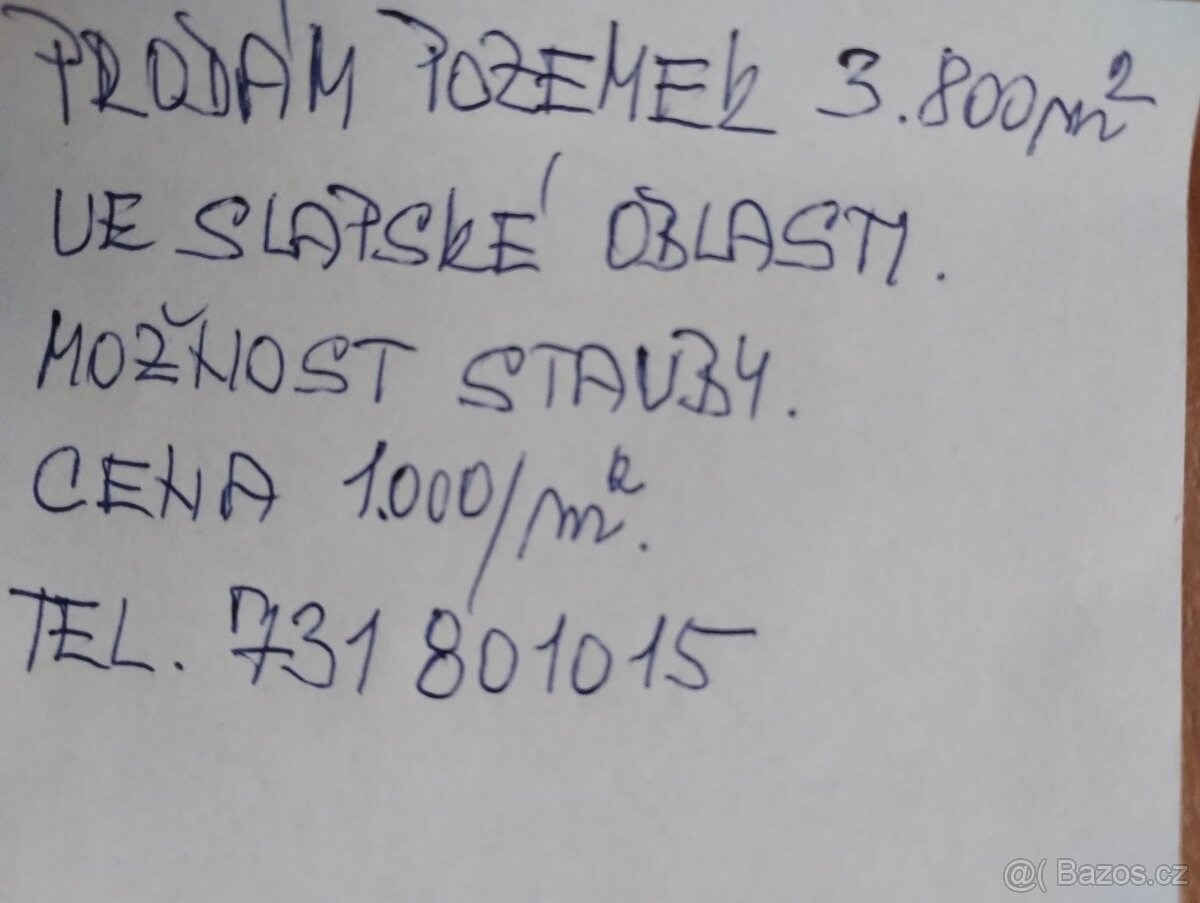 PRODÁM POZEMEK 3.800m²
VE SLAPSKÉ OBLASTI.
MOŽNOST STAVBY.
CENA 1.000/m².
TEL. 731 801015
@( Bazos.cz